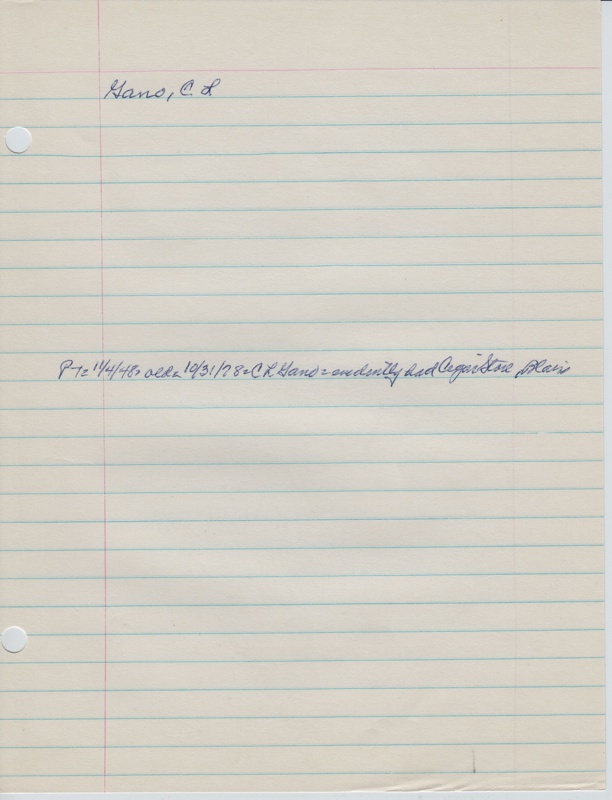 Gano, C. L
P-T= 11/4/48= old= 10/31/78= C L Gano= evidently had Cigar Store, Blair